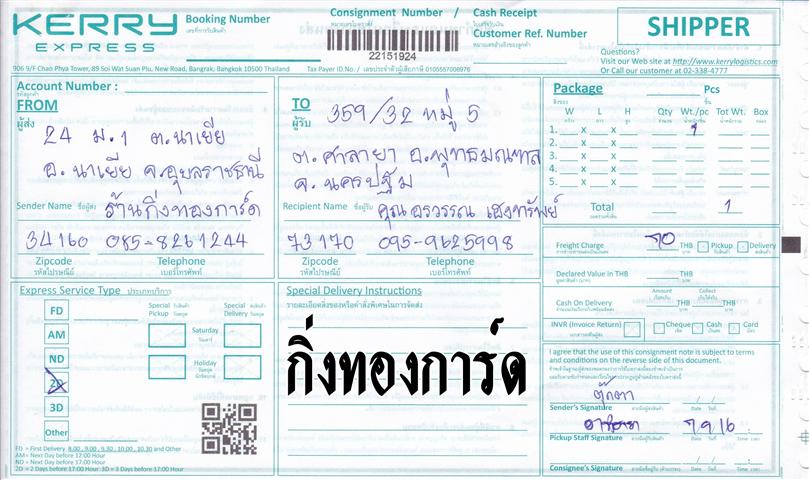 KERRY
EXPRESS
Booking Number
เลขที่การรับสินค้า
Consignment Number / Cash Receipt
หมายเลขใบตราส่ง ใบเสร็จรับเงิน
Customer Ref. Number
หมายเลขอ้างอิงของลูกค้า
22151924
SHIPPER
Questions?
Visit our Web site at http://www.kerrylogistics.com
Or Call our customer at 02-338-4777
906 9/F Chao Phya Tower, 89 Soi Wat Suan Plu, New Road, Bangrak, Bangkok 10500 Thailand
Tax Payer ID.No. / เลขประจำตัวผู้เสียภาษี
Account Number :
รหัสลูกค้า
FROM
ผู้ส่ง
24 ม.1 ต.นาเยีย
อ.นาเยีย จ.อุบลราชธานี
Sender Name ชื่อผู้ส่ง ร้านกิ่งทองการ์ด
34160 085-8261244
Zipcode Telephone
รหัสไปรษณีย์ เบอร์โทรศัพท์
TO
ผู้รับ
359/32 หมู่ 5
ต.ศาลายา อ.พุทธมณฑล
จ.นครปฐม
Recipient Name ชื่อผู้รับ คุณอรวรรณ เฮงทรัพย์
73170 095-9625998
Zipcode Telephone
รหัสไปรษณีย์ เบอร์โทรศัพท์
Package Pcs
สิ่งของ ชิ้น
W L H Qty Wt./pc Tot Wt. Box
1. X X 1
2. X X
3. X X
4. X X
5. X X
Total 1
Freight Charge 70 THB Pickup Delivery
Declared Value in THB
Amount Collect
Cash On Delivery THB THB
INVR (Invoice Return) Cheque Cash Card
Express Service Type ประเภทบริการ
Special Pickup Special Delivery
FD
AM Saturday
วันเสาร์
ND Holiday
วันหยุด
2D
3D
Other
FD = First Delivery 8.00 , 9.00 , 9.30 , 10.00 , 10.30 and Other
AM = Next Day before 12:00 Hour
ND = Next Day before 17:00 Hour
2D = 2 Days before 17:00 Hour: 3D = 3 Days before 17.00 Hour
Special Delivery Instructions
รายละเอียดสิ่งของหรือคำสั่งพิเศษในการจัดส่ง
กิ่งทองการ์ด
I agree that the use of this consignment note is subject to terms
and conditions on the reverse side of this document.
ตุ๊กตา
Sender's Signature ลายมือชื่อผู้ส่งสินค้า Date วันที่
7 9 16
Pickup Staff Signature Date วันที่ Time เวลา
Consignee's Signature Date วันที่ Time เวลา